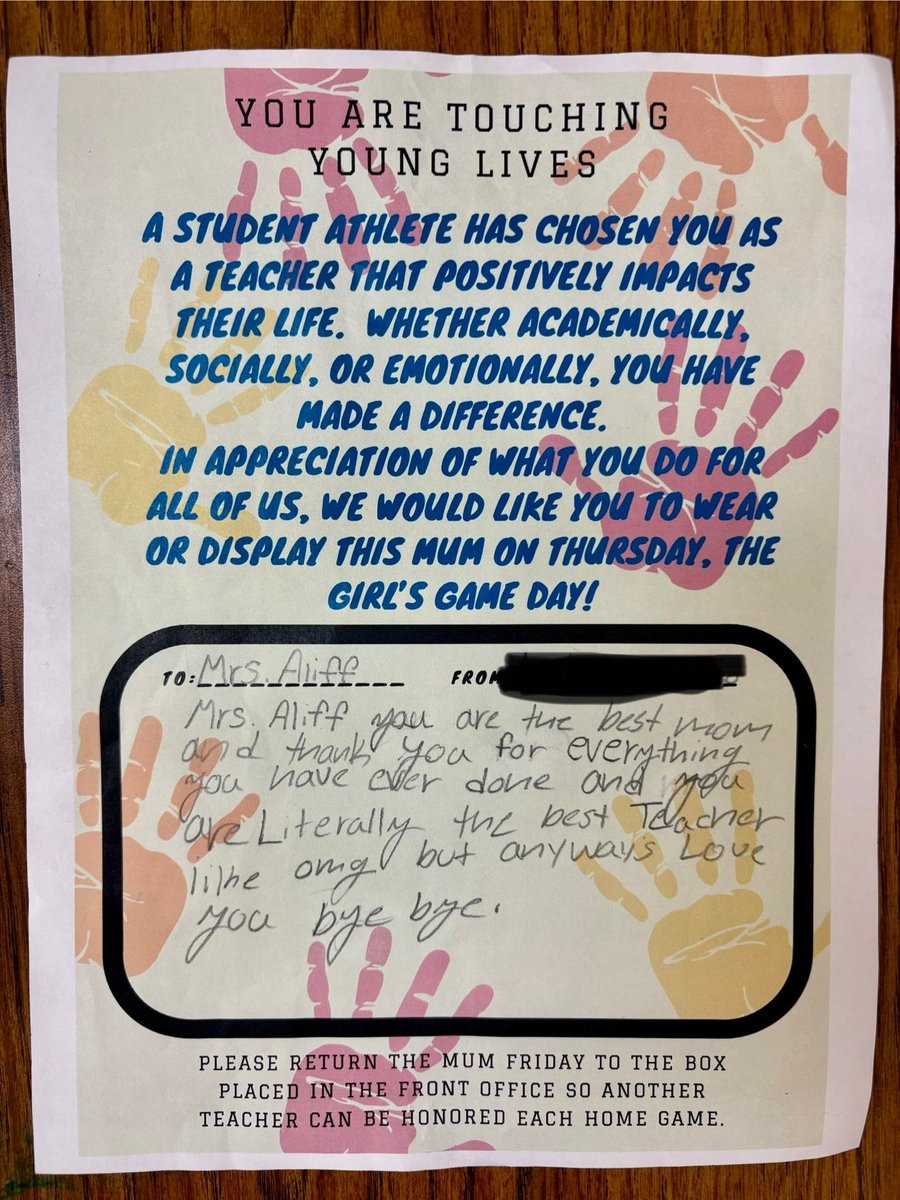 YOU ARE TOUCHING
YOUNG LIVES
A STUDENT ATHLETE HAS CHOSEN YOU AS
A TEACHER THAT POSITIVELY IMPACTS
THEIR LIFE. WHETHER ACADEMICALLY,
SOCIALLY, OR EMOTIONALLY, YOU HAVE
MADE A DIFFERENCE.
IN APPRECIATION OF WHAT YOU DO FOR
ALL OF US, WE WOULD LIKE YOU TO WEAR
OR DISPLAY THIS MUM ON THURSDAY, THE
GIRL'S GAME DAY!
TO: Mrs. Aliff FROM
Mrs. Aliff you are the best mom
and thank you for everything
you have ever done and you
are Literally the best Teacher
lihe omg but anyways Love
you bye bye.
PLEASE RETURN THE MUM FRIDAY TO THE BOX
PLACED IN THE FRONT OFFICE SO ANOTHER
TEACHER CAN BE HONORED EACH HOME GAME.